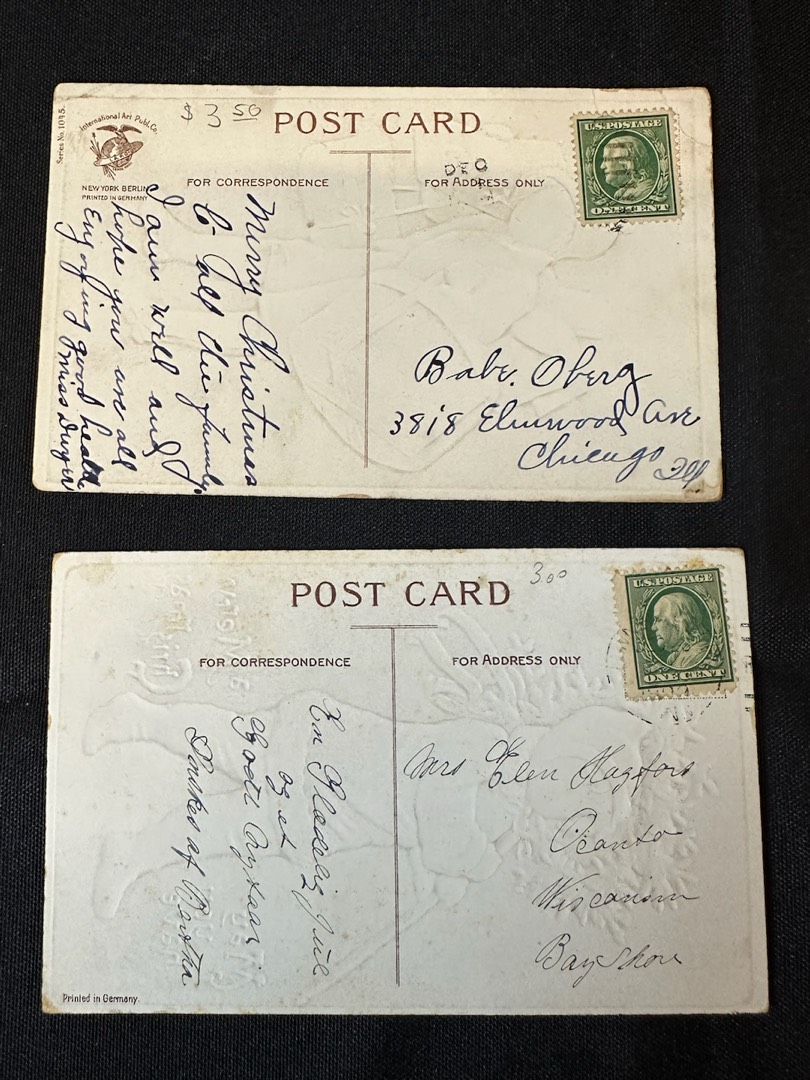 Series No. 1015.
International Art Publ. Co.
NEW YORK BERLIN
PRINTED IN GERMANY
$3 50
POST CARD
FOR CORRESPONDENCE
FOR ADDRESS ONLY
DEC
U.S. POSTAGE
ONE CENT
Merry Christmas
to all the family
I am well and
hope you are all
Enjoying good health
Miss Dwyer
Babe. Oberg
3818 Elmwood Ave
Chicago Ill
POST CARD
3.00
FOR CORRESPONDENCE
FOR ADDRESS ONLY
U.S. POSTAGE
ONE CENT
En Glædelig Jul
og et
Godt Nytaar
Ønskes af Bertha
Mrs Elen Hagfors
Oconto
Wisconsin
Bay Shore
Printed in Germany.